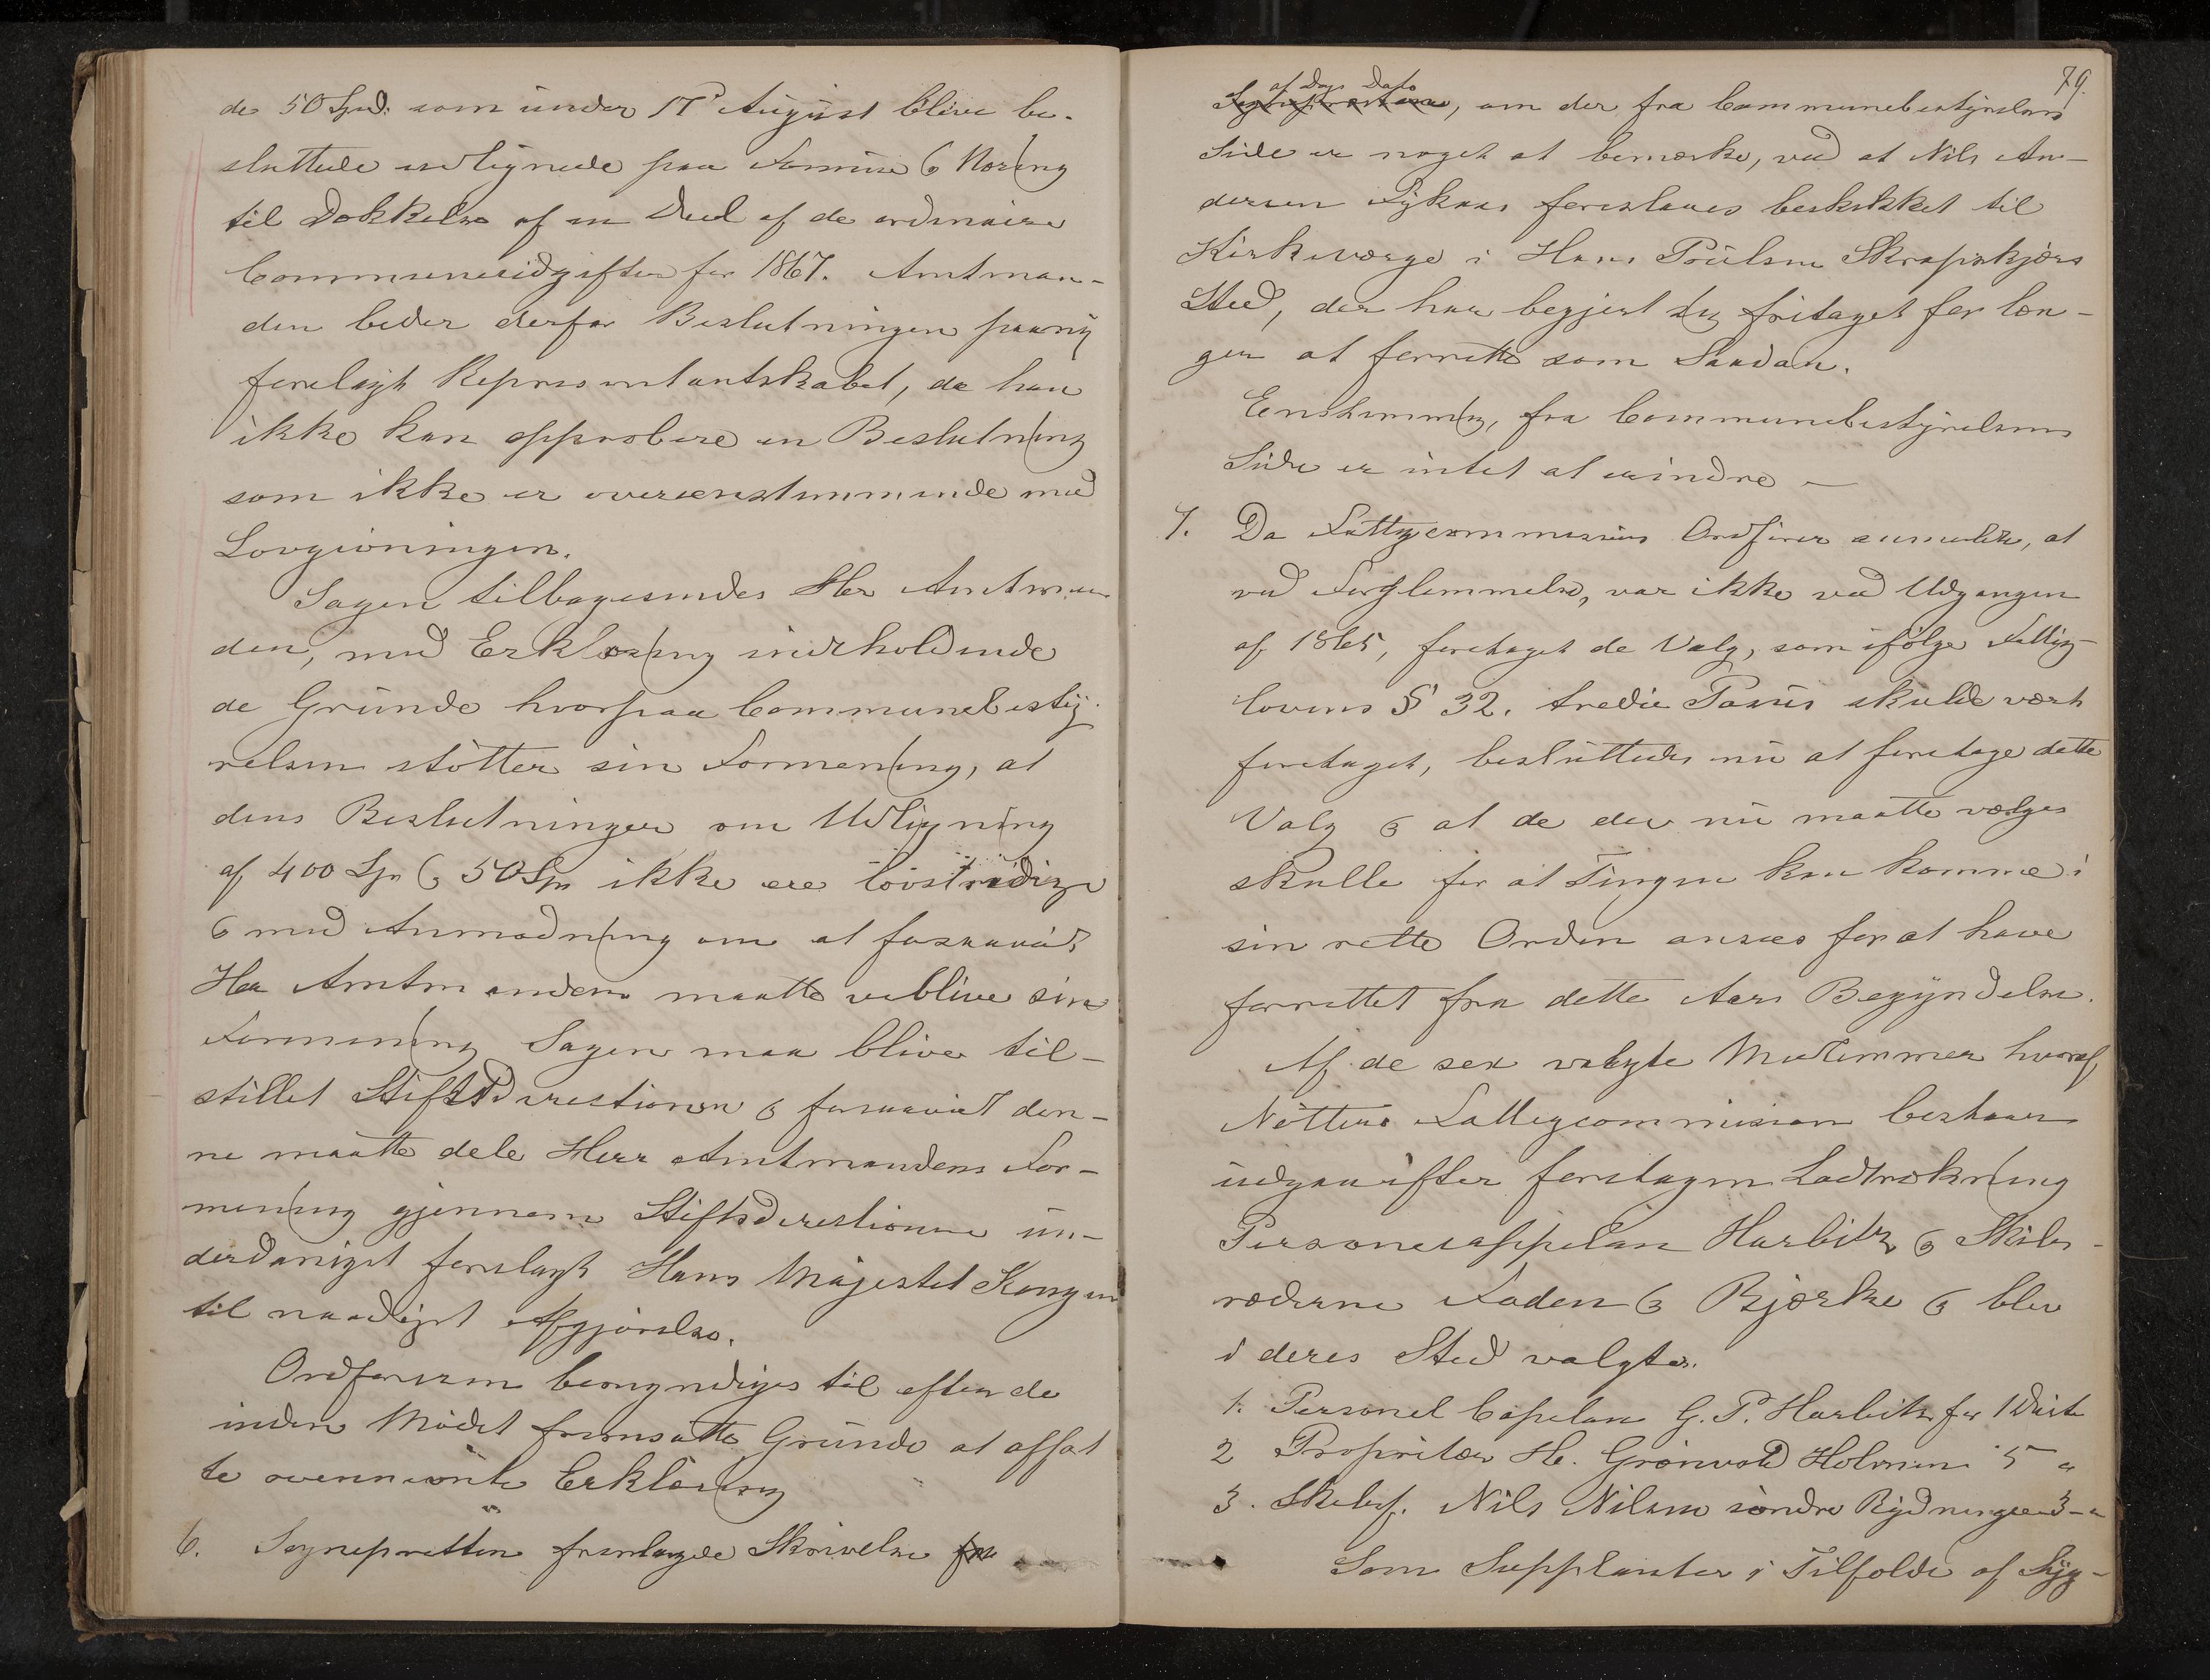 de 50 Spd. som under 17de August blive be-
sluttede udlignede paa Formue & Næring
til Dækkelse af en Deel af de ordinaire
Communeudgifter for 1867. Amtman-
den beder derfor Beslutningen paany
forelagt Repræsentantskabet, da han
ikke kan approbere en Beslutning
som ikke er overeensstemmende med
Lovgivningen.
Sagen tilbagesendes Hr Amtman
den, med Erklæring inderholdende
de Grunde hvorpaa Communebesty-
relsen støtter sin Formening, at
dens Beslutninger om Udligning
af 400 Spd & 50 Spd ikke ere lovstridige
& med Anmodning om at forsaavidt
Her Amtmanden maatte vedblive sin
Formening Sagen maa blive til-
stillet Stiftsdirectionen & forsaavidt den-
ne maatte dele Herr Amtmandens For-
mening gjennem Stiftsdirectionen un-
derdanigst forelagt Hans Majestet Kongen
til naadigst Afgjørelse.
Ordføreren bemyndiges til efter de
inden Mødet fremsatte Grunde at affat
te ovennævnte Erklæring
6. Sognepræsten fremlagde Skrivelse fra
79.
af Dags Dato
Sognepræsten, om der fra Communebestyrelsens
Side er noget at bemærke, ved at Nils An-
dersen Fykaas foreslaaes beskikket til
Kirkeværge i Hans Poulsen Skrapskjærs
Sted, der har begjert sig fritaget for læn-
gere at forrette som Saadan.
Eenstemmig, fra Communebestyrelsens
Side er intet at erindre —
7. Da Fattigcommissions Ordfører anmeldte, at
ved Forglemmelse, var ikke ved Udgangen
af 1865, foretaget de Valg, som ifølge Fattig-
lovens § 32. tredie Passus skulde vært
foretaget, besluttedes nu at foretage dette
Valg & at de der nu maatte vælges
skulle for at Tingen kan komme i
sin rette Orden ansees for at have
forrettet fra dette Aars Begyndelse.
Af de sex valgte Medlemmer hvoraf
Nøtterø Fattigcommission bestaaer
udgaar efter foretagen Lodtrækning
Personelcappelan Harbitz & Skibs-
rederne Foden & Bjærke & blev
i deres Sted valgte.
1. Personel Capelan G. P. Harbitz for 1 Viste
2 Proprietær H. Grønvold Holmen " 5 "
3. Skibsf. Nils Nilsen søndre Rydningen " 3 - "
Som Supplanter i Tilfælde af Syg-